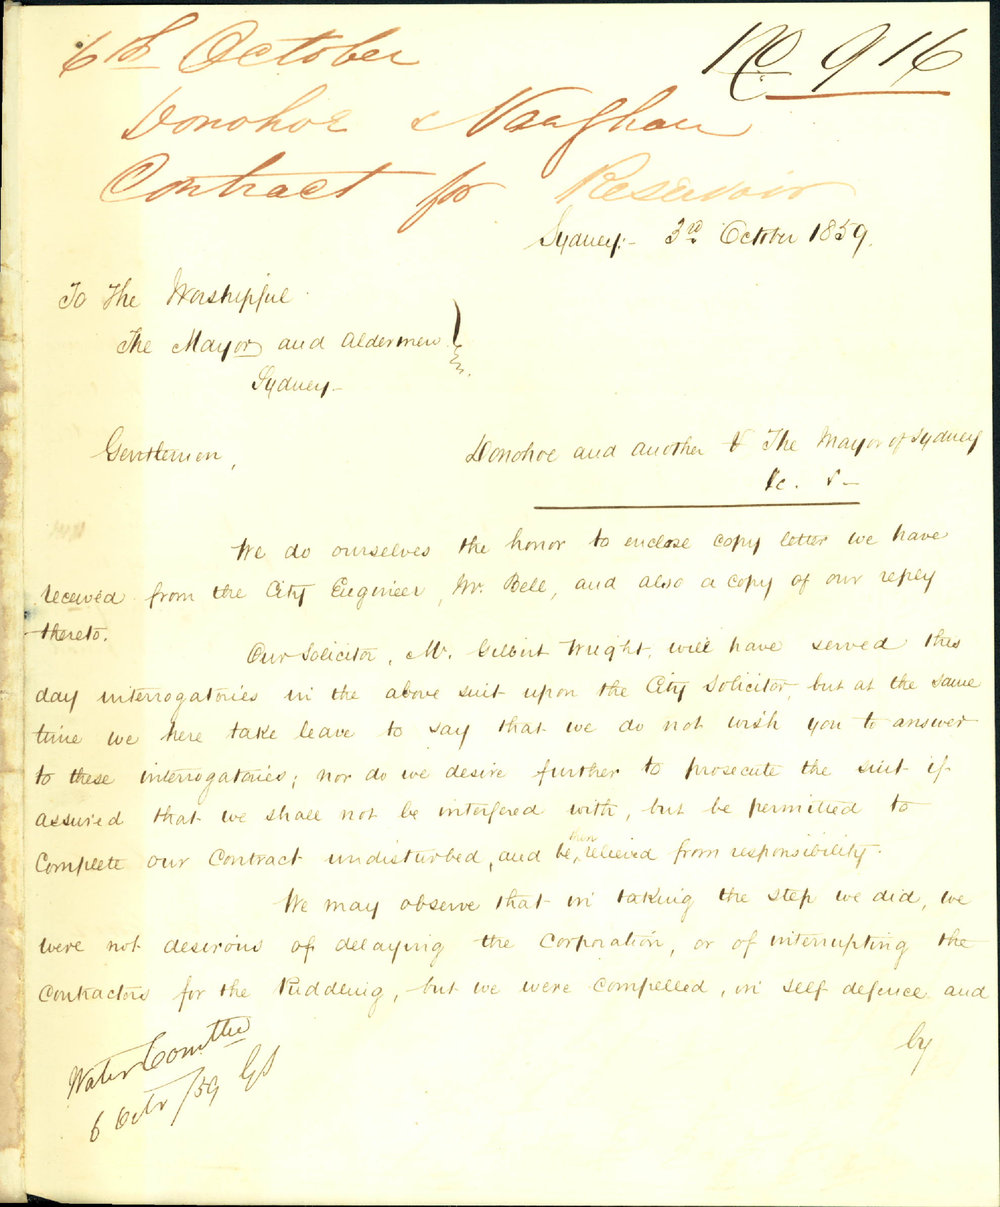 6th October
No. 916
Donohoe & Vaughan
Contract for Reservoir
Sydney:- 3rd October 1859.
To The Worshipful
The Mayor and Aldermen
Sydney-
Gentlemen,
Donohoe and another v The Mayor of Sydney
&c.
We do ourselves the honor to enclose copy letter we have
received from the City Engineer, Mr. Bell, and also a copy of our reply
thereto.
Our Solicitor, Mr. Gilbert Wright, will have served this
day interrogatories in the above suit upon the City Solicitor, but at the same
time we here take leave to say that we do not wish you to answer
to these interrogatories; nor do we desire further to prosecute the suit if
assured that we shall not be interfered with, but be permitted to
Complete our Contract undisturbed, and be then relieved from responsibility.
We may observe that in taking the step we did, we
were not desirous of delaying the Corporation, or of interrupting the
Contractors for the Puddling, but we were compelled, in self defence and
by
Water Comttee
6 Octr /59